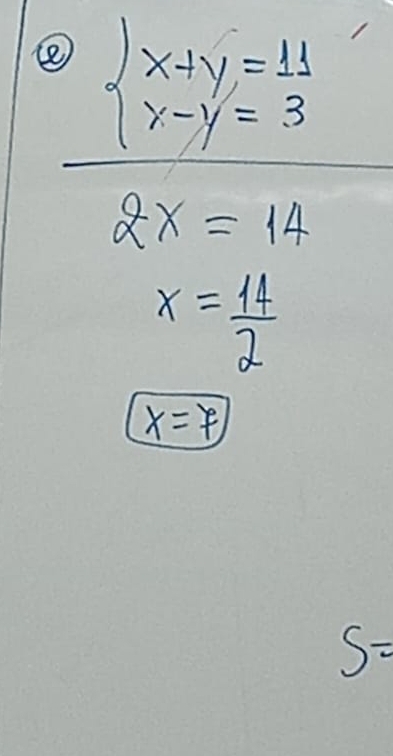 e) { x+y = 11
x-y = 3
2x = 14
x = 14/2
x = 7
S=